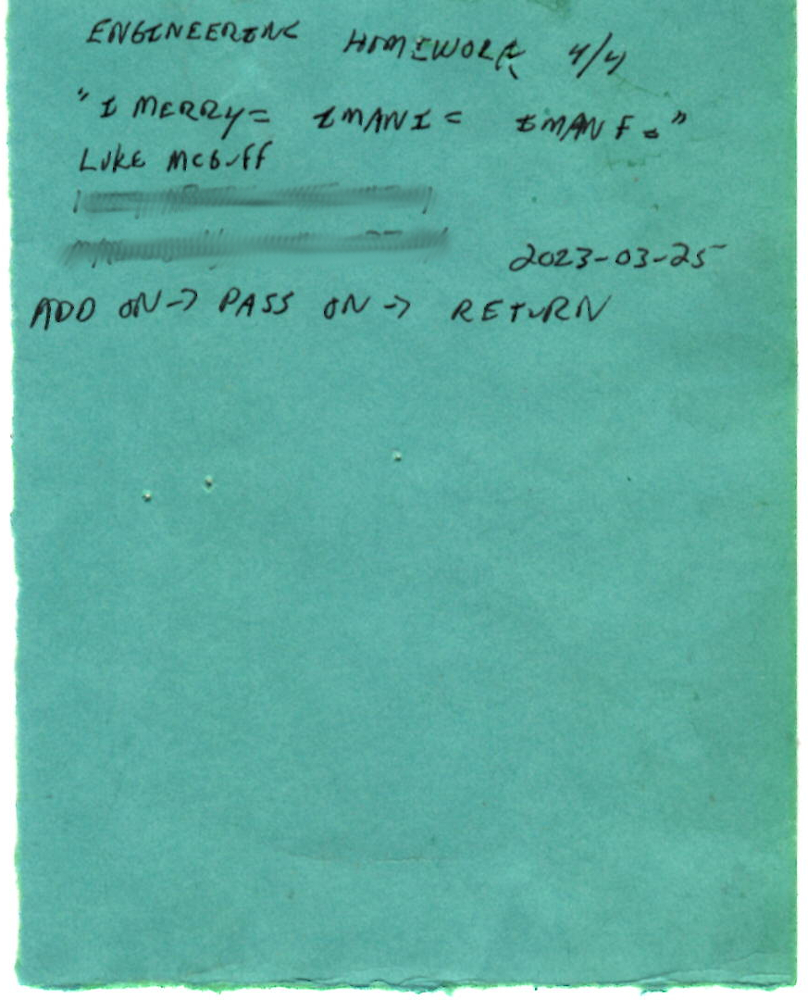 ENGINEERING HOMEWORK 4/4
"I MERRY= IMANI= IMAN F="
LUKE MCGUFF
2023-03-25
ADD ON -> PASS ON -> RETURN